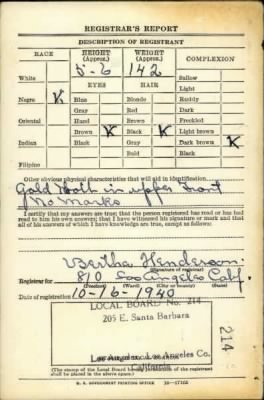 REGISTRAR'S REPORT
DESCRIPTION OF REGISTRANT
RACE HEIGHT (Approx.) WEIGHT (Approx.) COMPLEXION
5-6 142
White Sallow
EYES HAIR Light
Negro Blue Blonde Ruddy
Gray Red Dark
Oriental Hazel Brown Freckled
Brown Black Light brown
Indian Black Gray Dark brown
Bald Black
Filipino
Other obvious physical characteristics that will aid in identification
Gold tooth in upper front
No Marks
I certify that my answers are true; that the person registered has read or has had
read to him his own answers; that I have witnessed his signature or mark and that
all of his answers of which I have knowledge are true, except as follows:
Bertha Henderson
(Signature of registrar)
Registrar for 810 Los Angeles Calif.
(Precinct) (Ward) (City or county) (State)
Date of registration 10-16-1940
LOCAL BOARD No. 214
205 E. Santa Barbara
214
Los Angeles, Los Angeles Co.
California
(The stamp of the Local Board having jurisdiction of the registrant shall be
placed in the above space.)
U. S. GOVERNMENT PRINTING OFFICE 16-17105